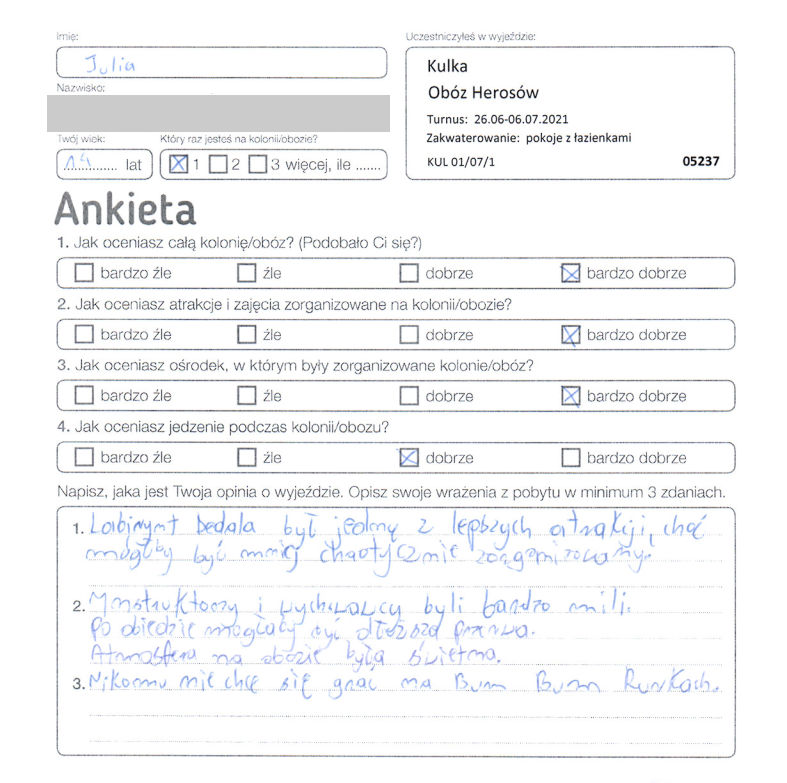 Imię:
Julia
Nazwisko:
Uczestniczyłeś w wyjeździe:
Kulka
Obóz Herosów
Turnus: 26.06-06.07.2021
Zakwaterowanie: pokoje z łazienkami
KUL 01/07/1 05237
Twój wiek:
14 lat
Który raz jesteś na kolonii/obozie?
1 2 3 więcej, ile .......
Ankieta
1. Jak oceniasz całą kolonię/obóz? (Podobało Ci się?)
bardzo źle źle dobrze bardzo dobrze
2. Jak oceniasz atrakcje i zajęcia zorganizowane na kolonii/obozie?
bardzo źle źle dobrze bardzo dobrze
3. Jak oceniasz ośrodek, w którym były zorganizowane kolonie/obóz?
bardzo źle źle dobrze bardzo dobrze
4. Jak oceniasz jedzenie podczas kolonii/obozu?
bardzo źle źle dobrze bardzo dobrze
Napisz, jaka jest Twoja opinia o wyjeździe. Opisz swoje wrażenia z pobytu w minimum 3 zdaniach.
1. Labirynt Dedala był jedną z lepszych atrakcji, choć
mógłby być mniej chaotycznie zorganizowany.
2. Instruktorzy i wychowawcy byli bardzo mili.
Po obiedzie mogłaby być dłuższa przerwa.
Atmosfera na obozie była świetna.
3. Nikomu nie chce się grać na Bum Bum Rurkach.